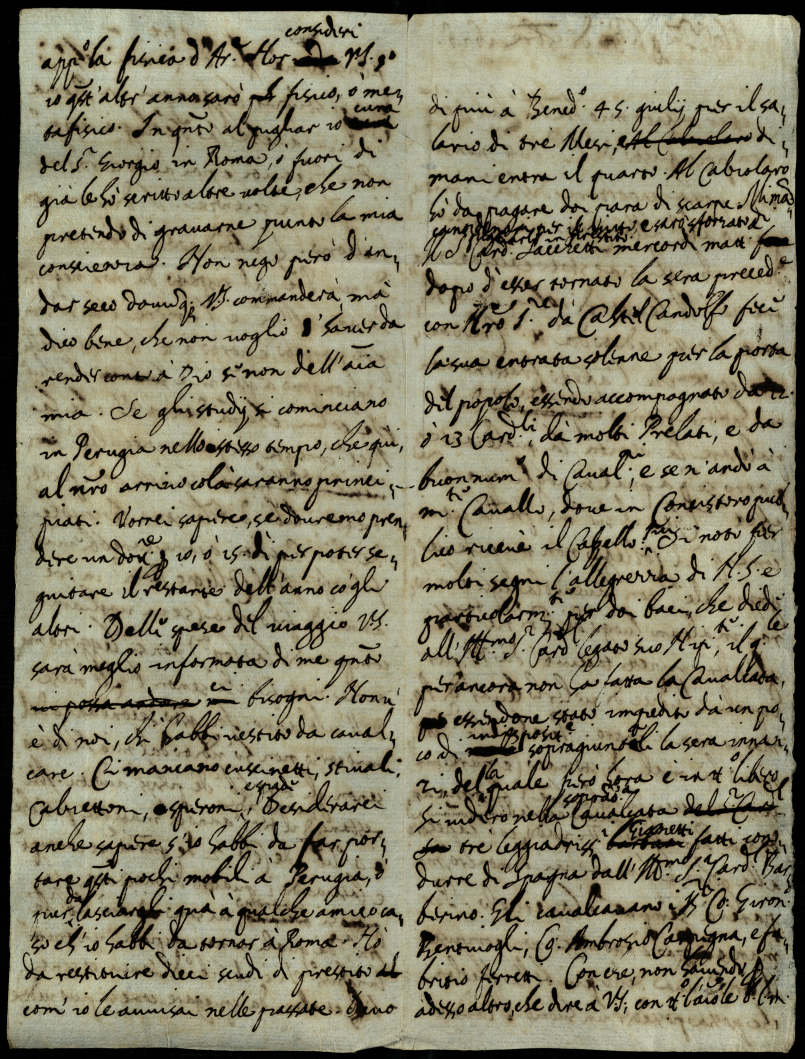 consideri
app.o la fisica d'Ar.e Hor VS. 
io q.st'altr'anno sarò fisico, ò me=
tafisico. In q.nto al pigliar io cura
del S.r Giorgio in Roma, ò fuori di
già le hò scritto altre volte, che non
pretendo di gravarne punto la mia
conscienza. Non nego però d'an=
dar seco VS. commanderà, mà
dico bene, che non voglio haver da
render conto à Dio se non dell'a͠ia
mia. Se gli studij si cominciano
in Perugia nello stesso tempo, che quì,
al n͠ro arrivo colà saranno princi=
piati. Vorrei sapere, se dovremo pren=
dere un 10, ò 15. dì per poter se=
guitare il restante dell'anno cogli
altri. Delle spese del viaggio VS.
sarà meglio informata di me q.nto
bisogni. Non v'
è di noi, chi habbi vestito da caval=
care. Ci mancano cuscinetti, stivali,
Cabrettoni, speroni, e spade. Desiderarei
anche sapere s'io habbi da far por=
tare q.sti pochi mobili à Perugia, ò
pur lasciarli quà à qualche amico ca=
so ch'io habbi da tornar à Roma. Hò
da restituire dieci scudi di prestito
com'io le avvisai nelle passate. Devo
di più à Bened.o 45. giulij per il sa=
lario di tre Mesi, di=
mani entra il quarto. Al Calzolaro
hò da pagare doi para di scarpe
Il S.r Card. Sacchetti mercordì matt.
dopo d'esser tornato la sera preced.e
con N͠ro S.re dà Castel Gandolfo fece
la sua entrata solenne per la porta
del popolo, essendo accompagnato da 12.
ò 13 Card.li, dà molti Prelati, e da
buon num.o di Caval.ri, e se n'andò à
m.te Cavallo, dove in Concistoro pub=
lico ricevè il Capello. Si notò per
molti segni l'allegrezza di N.S. e
particolarm.te per doi baci, che diede
all'Ill.mo S.r Card. legato suo Nip.te, il q.le
per ancora non hà fatta la Cavalcata,
essendone stato impedito dà un po=
co di indispositione sopragiuntali la sera innan=
zi, della quale però hora è in t.o libero.
Si videro nella sopradetta Cavalcata
tre leggiadriss.i Gianetti fatti con=
durre di Spagna dall'Ill.mo S.r Card. Bar=
berino. Gli cavalcavano il Giron
Bentivogli, Ambrosio Carpegna, e fa=
britio ferretti. Con che, non havendo p.
adesso altro, che dire à VS; con t.o l'a͠io le b. l. m.